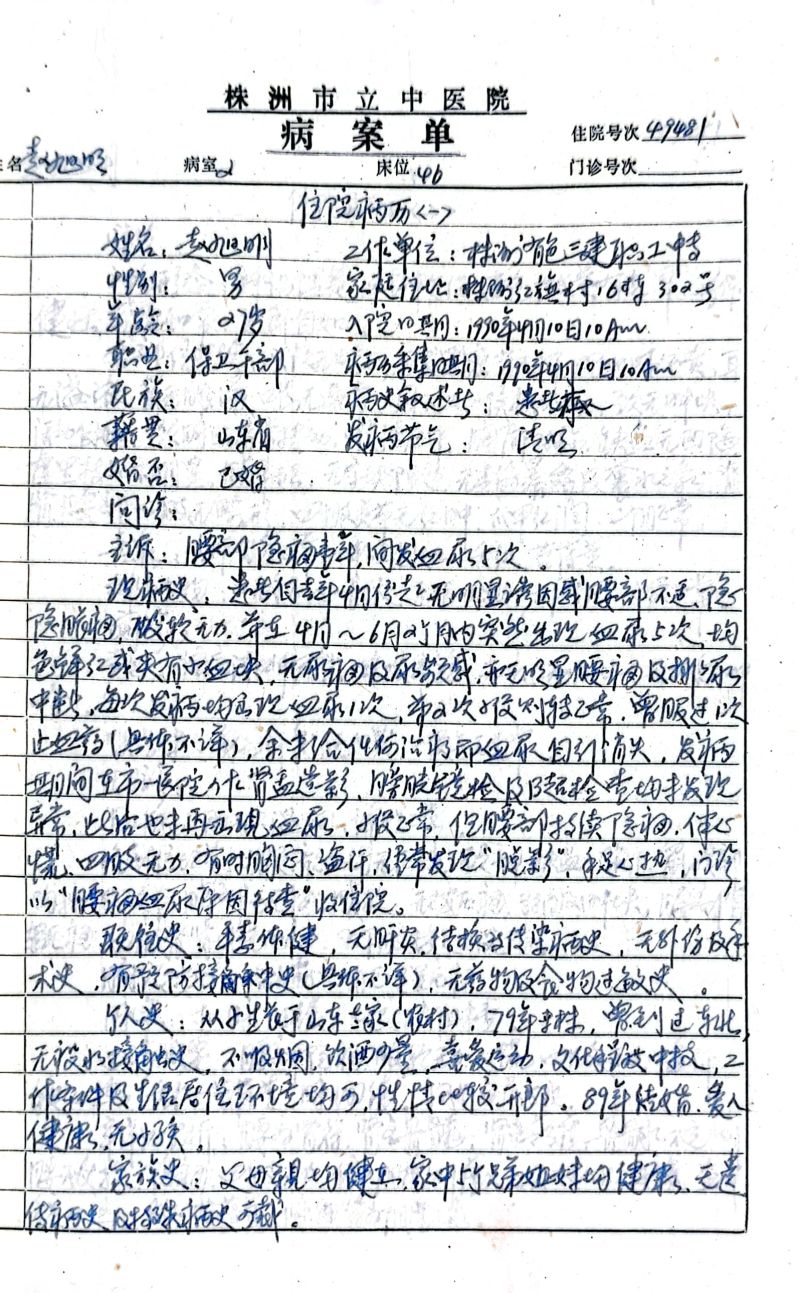 株洲市立中医院
病案单
住院号次 49481
名 赵旭明 病室 2 床位 46 门诊号次
住院病历<一>
姓名: 赵旭明 工作单位: 株洲有色三建职工中专
性别: 男 家庭住址: 株洲红旗村16栋302号
年龄: 27岁 入院日期: 1990年4月10日10Am
职业: 保卫干部 病历采集日期: 1990年4月10日10Am
民族: 汉 病史叙述者: 患者
籍贯: 山东省 发病节气: 清明
婚否: 已婚
问诊:
主诉: 腰部隐痛壹年,间发血尿5次。
现病史: 患者自去年4月份起无明显诱因感腰部不适、隐
隐胀痛,酸软无力,并在4月~6月2个月内突然出现血尿5次,均
色鲜红或夹有小血块,无尿痛及尿频感,亦无明显腰痛及排尿
中断,每次发病均出现血尿1次,第2次小便则转正常,曾服过1次
止血药(具体不详),余未给任何治疗而血尿自行消失,发病
期间在市一医院作肾盂造影,膀胱镜检及B超检查均未发现
异常,此后也未再出现血尿,小便正常,但腰部持续隐痛,伴心
慌、四肢无力,有时胸闷、盗汗,经常发现"脱影",手足心热,门诊
以"腰痛血尿原因待查"收住院。
既往史: 平素体健,无肝炎,结核等传染病史,无外伤及手
术史,有预防接种史(具体不详),无药物及食物过敏史。
个人史: 从小生长于山东老家(农村),79年来株,曾到过东北,
无疫水接触史,不吸烟,饮酒少量,喜爱运动,文化程度中技,工
作条件及生活居住环境均可,性情比较开郎。89年结婚,爱人
健康,无小孩。
家族史: 父母亲均健在,家中5个兄弟姐妹均健康,无遗
传病史及特殊病史可载。